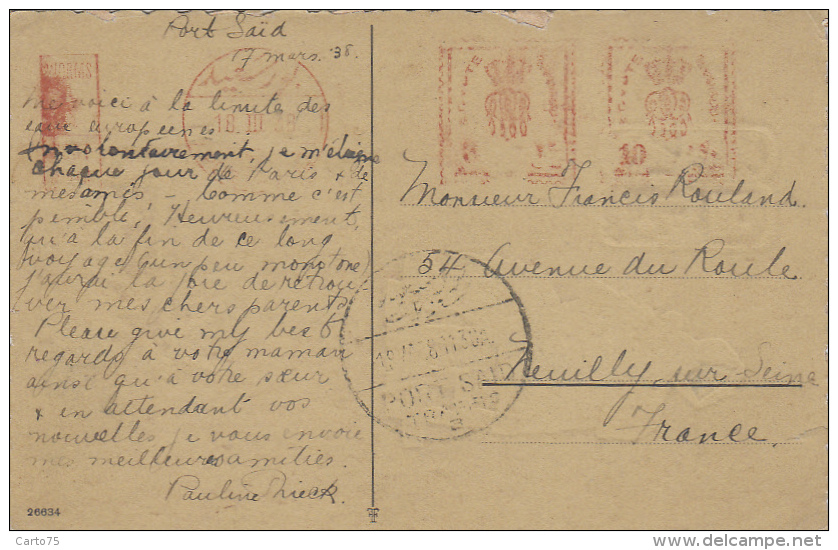 Port Saïd
17 mars 38.
Me voici à la limite des
eaux européenes.
Involontairement, je m'éloigne
chaque jour de Paris & de
mes amis, - Comme c'est
penible, Heureusement,
qu'à la fin de ce long
voyage (un peu monotone)
j'aurai la joie de retrou-
ver mes chers parents
Please give my best
regards à votre maman
ainsi qu'à votre sœur
& en attendant vos
nouvelles je vous envoie
mes meilleures amitiés.
Pauline
26634
18 III 38
EGYPTE
EGYPTE
10
Monsieur Francis Rouland.
54, Avenue du Roule.
Neuilly sur Seine
France.
PORT SAID
Carto75
www.delcampe.net